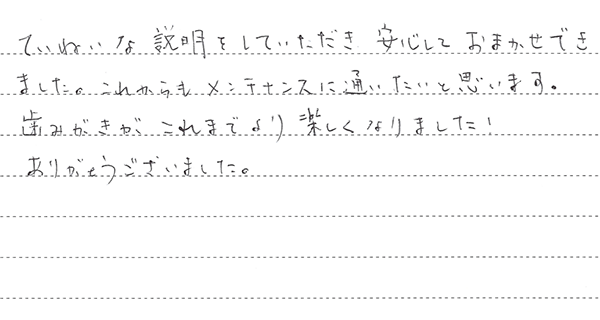 ていねいな説明をしていただき 安心して おまかせでき
ました。これからも メンテナンスに通いたいと思います。
歯みがきが これまでより 楽しくなりました!
ありがとうございました。